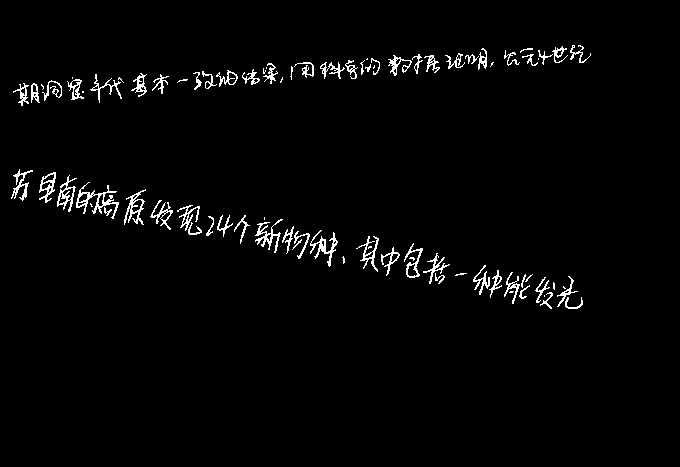 期洞窟年代基本一致的结果,用科学的数据证明,公元4世纪
苏里南的高原发现24个新物种、其中包括一种能发光